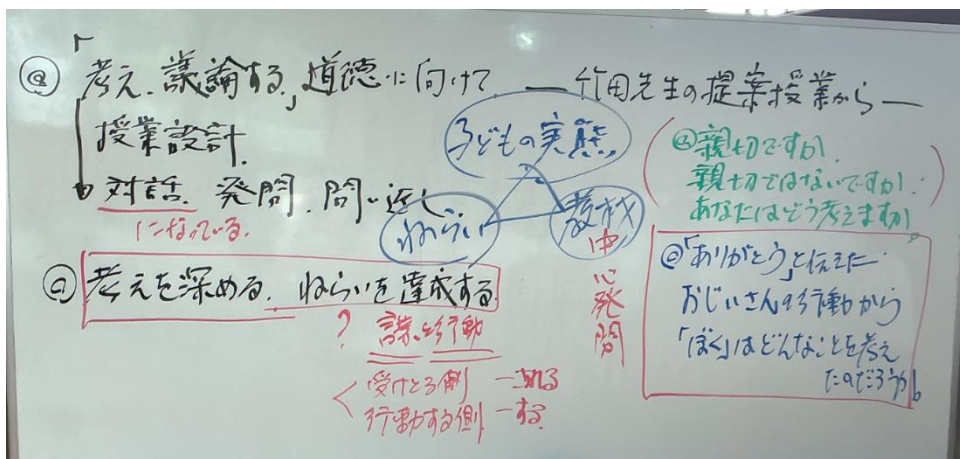 「
@ 考え、議論する」道徳に向けて ―竹田先生の提案授業から―
授業設計
対話、発問、問い返し
になっている。
子どもの実態
ねらい
教材
@ 考えを深める ねらいを達成する
?
行動
受けとる側 ―される
行動する側 ―する
中心発問
@親切ですか
親切ではないですか
あなたはどう考えますか。
@「ありがとう」と伝えた
おじいさんの行動から
「ぼく」はどんなことを考え
たのだろうか